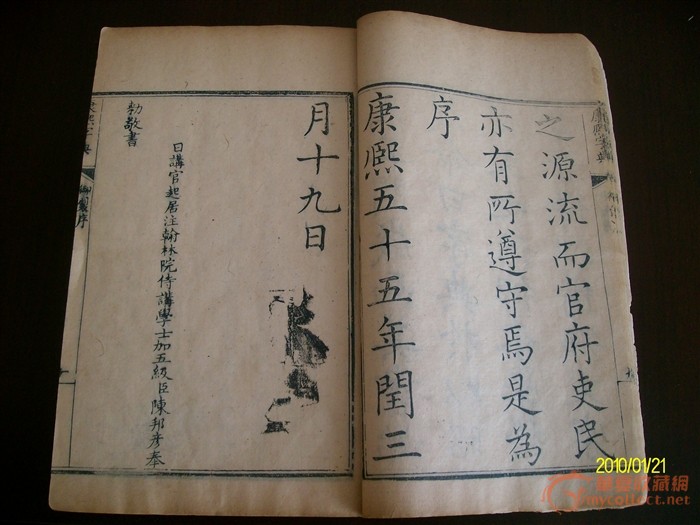 之源流而官府吏民
亦有所遵守焉是為
序
康熙五十五年閏三
月十九日
日講官起居注翰林院侍講學士加五級臣陳邦彥奉
勑敬書
康熙字典
御製序
康熙字典
2010/01/21
mycollect.net